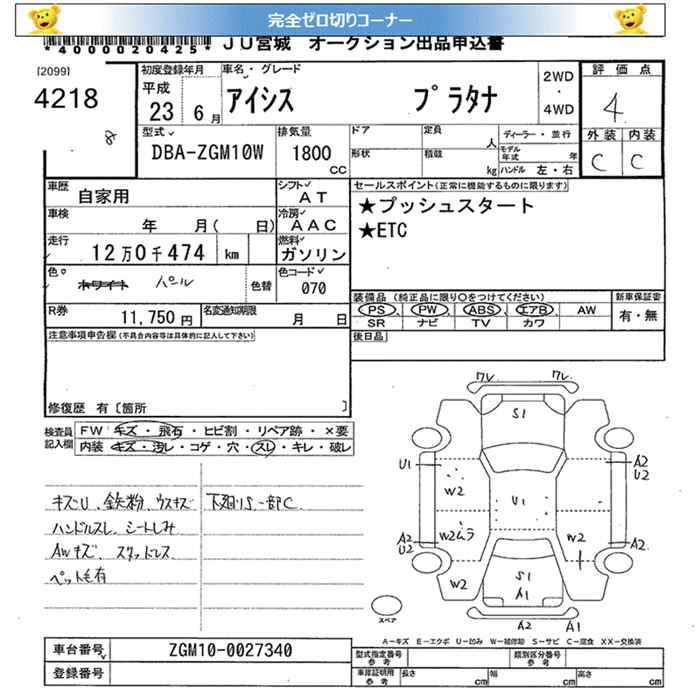 完全ゼロ切りコーナー
*4000020425* JU宮城 オークション出品申込書
[2099]
4218
8
初度登録年月
平成
23 6月
車名・グレード
アイシス プラタナ
2WD
・
4WD
評価点
4
外装 内装
C C
型式
DBA-ZGM10W
排気量
1800
CC
ドア
形状
定員
人
積載
kg
ディーラー・並行
モデル年式 年
ハンドル 左・右
車歴
自家用
シフト
AT
車検
年 月( 日)
冷房
AAC
走行
12万0千474 km
燃料
ガソリン
色
ホワイト パール
色替
色コード
070
R券
11,750円
名変通知期限
月 日
セールスポイント(正常に機能するものに限ります)
★プッシュスタート
★ETC
装備品(純正品に限り○をつけてください)
新車保証書
PS PW ABS エアB AW
SR ナビ TV カワ
有・無
後日品
注意事項申告欄(不具合内容等は具体的に記入して下さい)
修復歴 有〔箇所 〕
検査員記入欄
FW キズ・飛石・ヒビ割・リペア跡・×要
内装 キズ・汚レ・コゲ・穴・スレ・キレ・破レ
キズU、鉄粉、ウスキズ
ハンドルスレ、シートしみ
AWキズ スリットレス
ペット毛有
下廻りS一部C
ワレ ワレ
S1
U1
A2
U2
W2
U1
A2
U2
W2ムラ
W2
A2
W2
S1
A1
A2 A1
スペア
A-キズ E-エクボ U-凹み W-補修跡 S-サビ C-腐食 XX-交換済
車台番号
ZGM10-0027340
登録番号
型式指定番号
参考
類別区分番号
参考
車庫証明用
参考
長さ cm
幅 cm
高さ cm